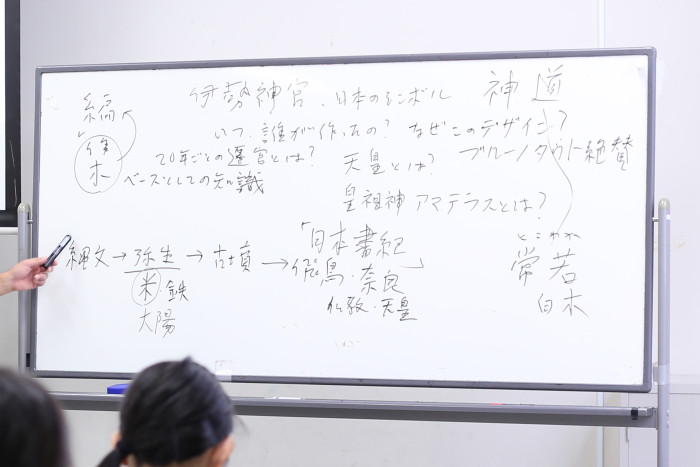 伊勢神宮、日本のシンボル 神道
いつ、誰が作ったの? なぜこのデザイン?
20年ごとの遷宮とは? 天皇とは? ブルーノタウト絶賛
ベースとしての知識
皇祖神 アマテラスとは?
木
縄文→弥生→古墳→飛鳥・奈良
「日本書紀」
米・鉄
仏教・天皇
太陽
とこわか
常若
白木